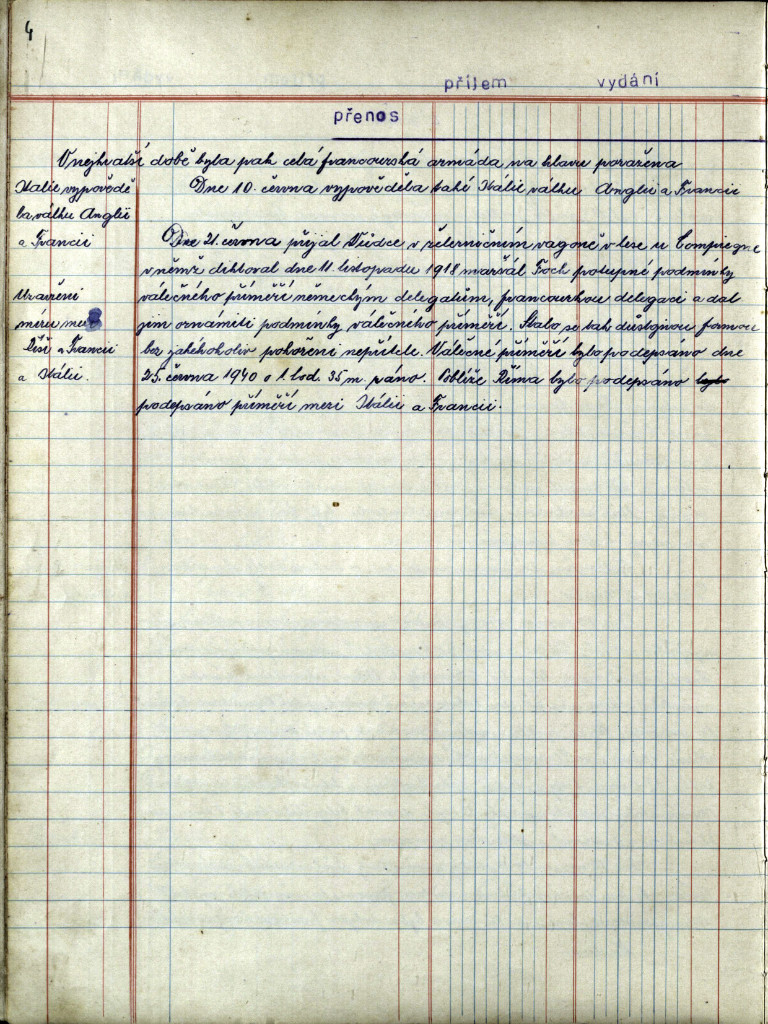 4
příjem vydání
přenos
V nejkratší době byla pak celá francouzská armáda na hlavu poražena
Italie vypovědě
la válku Anglii
a Francii
Dne 10. června vypověděla také Itálie válku Anglii a Francii
Uzavření
míru mezi
Říší a Francii
a Itálii.
Dne 21. června přijal Vůdce v železničním vagoně v lese u Compiegne
v němž diktoval dne 11. listopadu 1918 maršál Foch potupné podmínky
válečného příměří německým delegatům, francouzkou delegaci a dal
jim oznámiti podmínky válečného příměří. Stalo se tak důstojnou formou
bez jakéhokoliv pokoření nepřítele. Válečné příměří bylo podepsáno dne
25. června 1940 o 1. hod. 35 m. ráno. Poblíže Říma bylo podepsáno bylo
podepsáno příměří mezi Itálií a Francií.